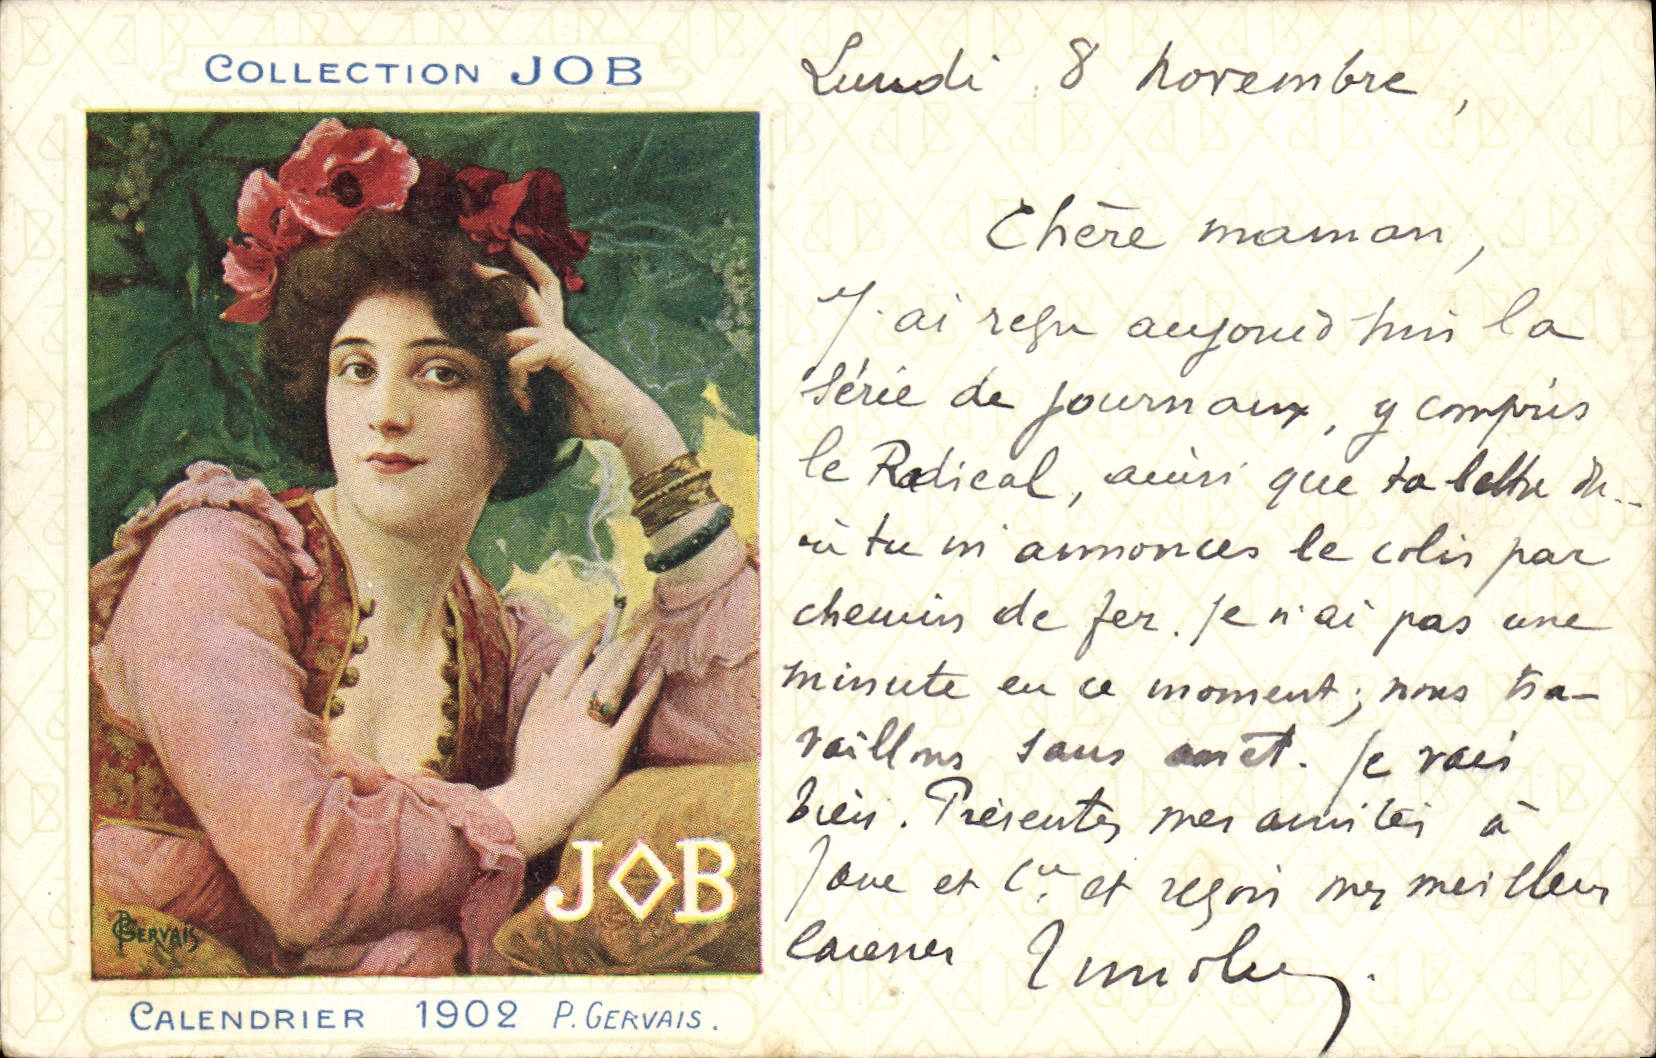 COLLECTION JOB
JOB
P. GERVAIS
CALENDRIER 1902 P. GERVAIS.
Lundi 8 novembre,
Chère maman,
J'ai reçu aujourd'hui la
série de journaux, y compris
le Radical, ainsi que ta lettre
où tu m'annonces le colis par
chemin de fer. Je n'ai pas une
minute en ce moment; nous tra-
vaillons sans arrêt. Je vais
bien. Présentes mes amitiés à
et Cie et reçois mes meilleurs
caresses